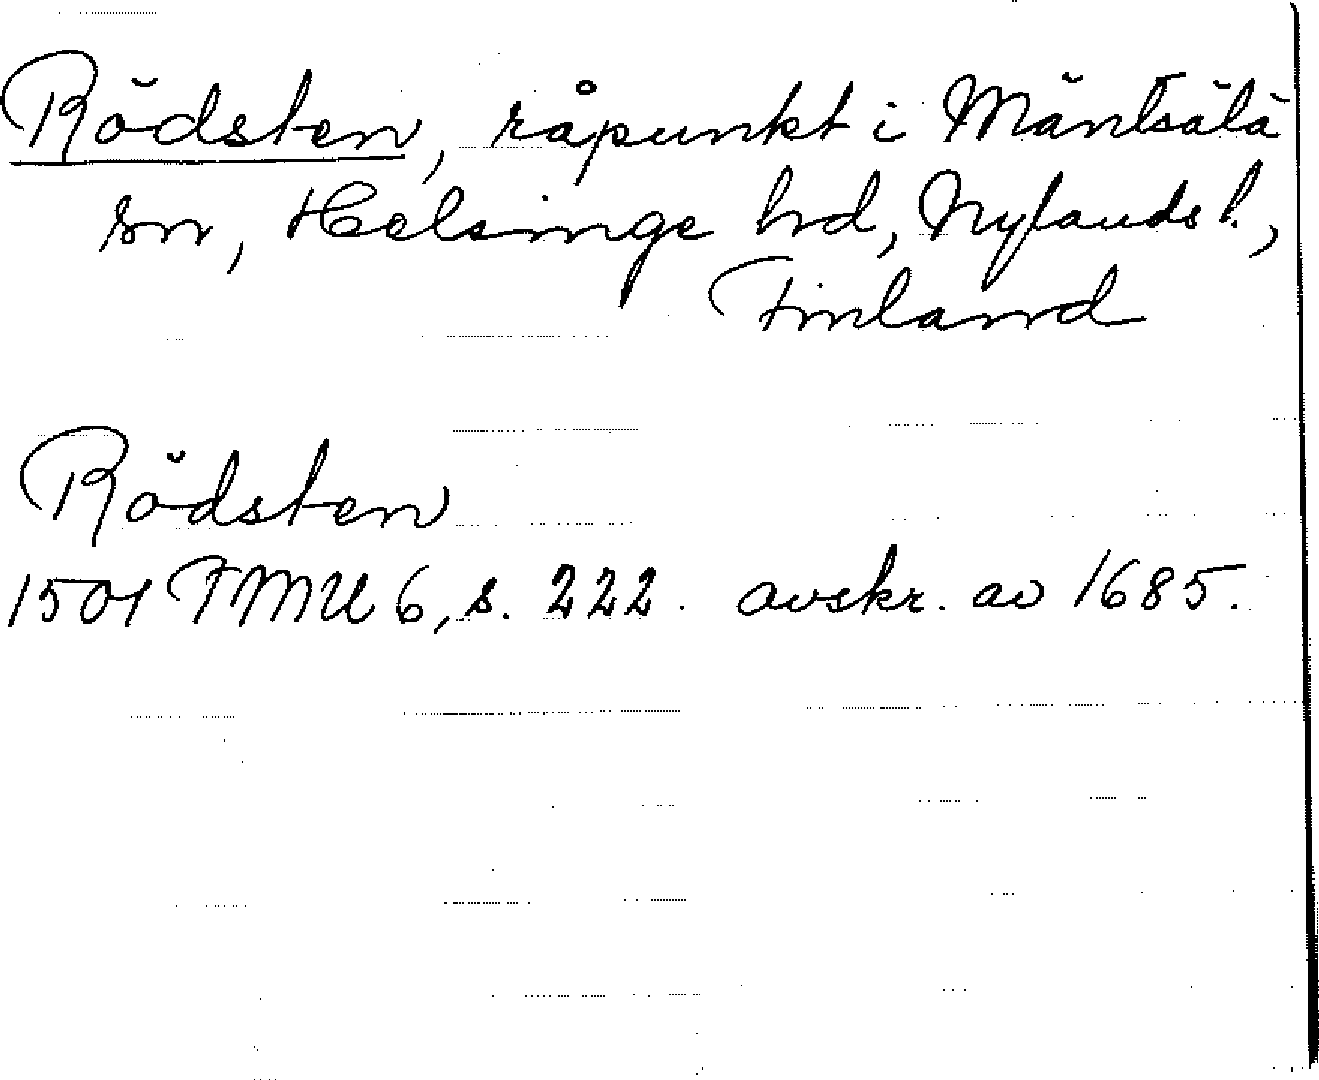 Rödsten, råpunkt i Mäntsälä
sn, Helsinge hd, Nylands l.,
Finland
Rödsten
1501 FMU 6, s. 222. avskr. av 1685.